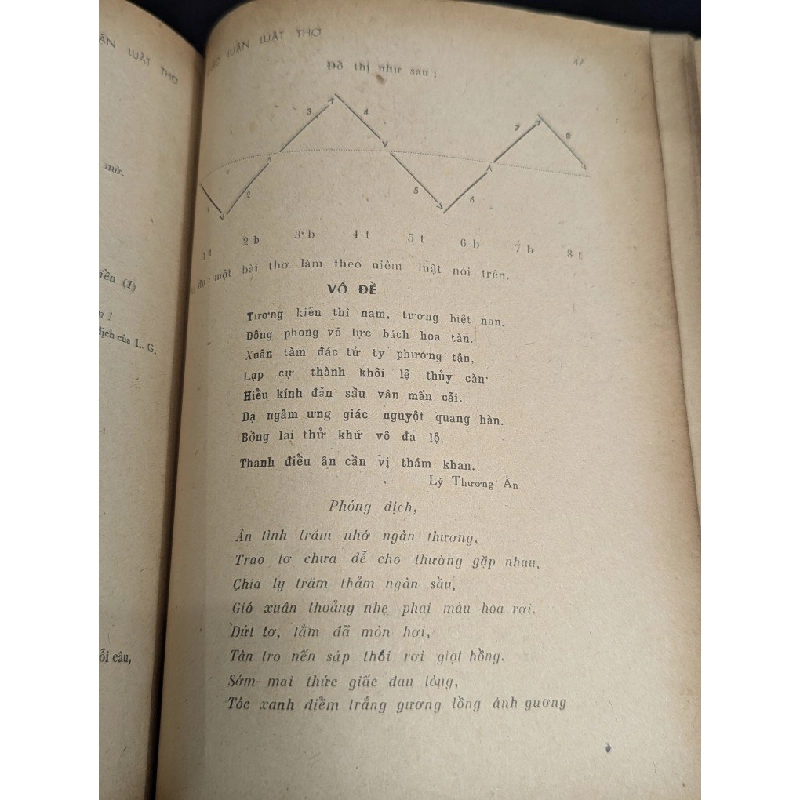 ÂN LUẬT THƠ
mở.
iễn (1)
dịch của L. G.
ỗi câu,
VẦN LUẬT THƠ
Đồ thị như sau :
1 2 3 4 5 6 7 8
1 t 2 b 3 b 4 t 5 t 6 b 7 b 8 t
một bài thơ làm theo niêm luật nói trên.
VÔ ĐỀ
Tương kiến thì nam, tương biệt nan.
Đông phong vô lực bách hoa tàn.
Xuân tằm đáo tử ty phương tận,
Lạp cự thành khôi lệ thủy càn.
Hiểu kính đãn sầu vân mấn cải.
Dạ ngâm ưng giác nguyệt quang hàn.
Bồng lai thử khứ vô đa lộ
Thanh điểu ân cần vị thám khan.
Lý Thương Ẩn
Phỏng dịch,
Ân tình trăm nhớ ngàn thương,
Trao tơ chưa dễ cho thường gặp nhau,
Chia ly trăm thảm ngàn sầu,
Gió xuân thoảng nhẹ phai màu hoa rơi.
Dứt tơ, tằm đã mòn hơi,
Tàn tro nến sáp thôi rơi giọt hồng.
Sớm mai thức giấc đau lòng,
Tóc xanh điểm trắng gương lồng ánh gương